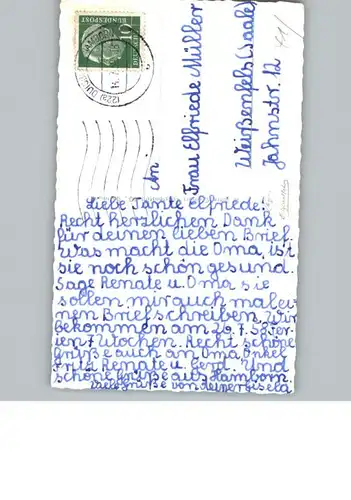 10
DEUTSCHE
BUNDESPOST
(22a) DUISBURG
An
Frau Elfriede Müller
Weißenfels (Saale)
Jahnstr. 12
Liebe Tante Elfriede!
Recht herzlichen Dank
für deinen lieben Brief.
Was macht die Oma, ist
sie noch schön gesund.
Sage Renate u. Oma sie
sollen mir auch mal ei-
nen Brief schreiben. Wir
bekommen am 26.7.58 Fer-
ien 7 Wochen. Recht schöne
Grüße auch an Oma Onkel
Fritz Renate u. Gerd. Und
schöne Grüße aus Hamborn.
Viele Grüße von deiner Gisela